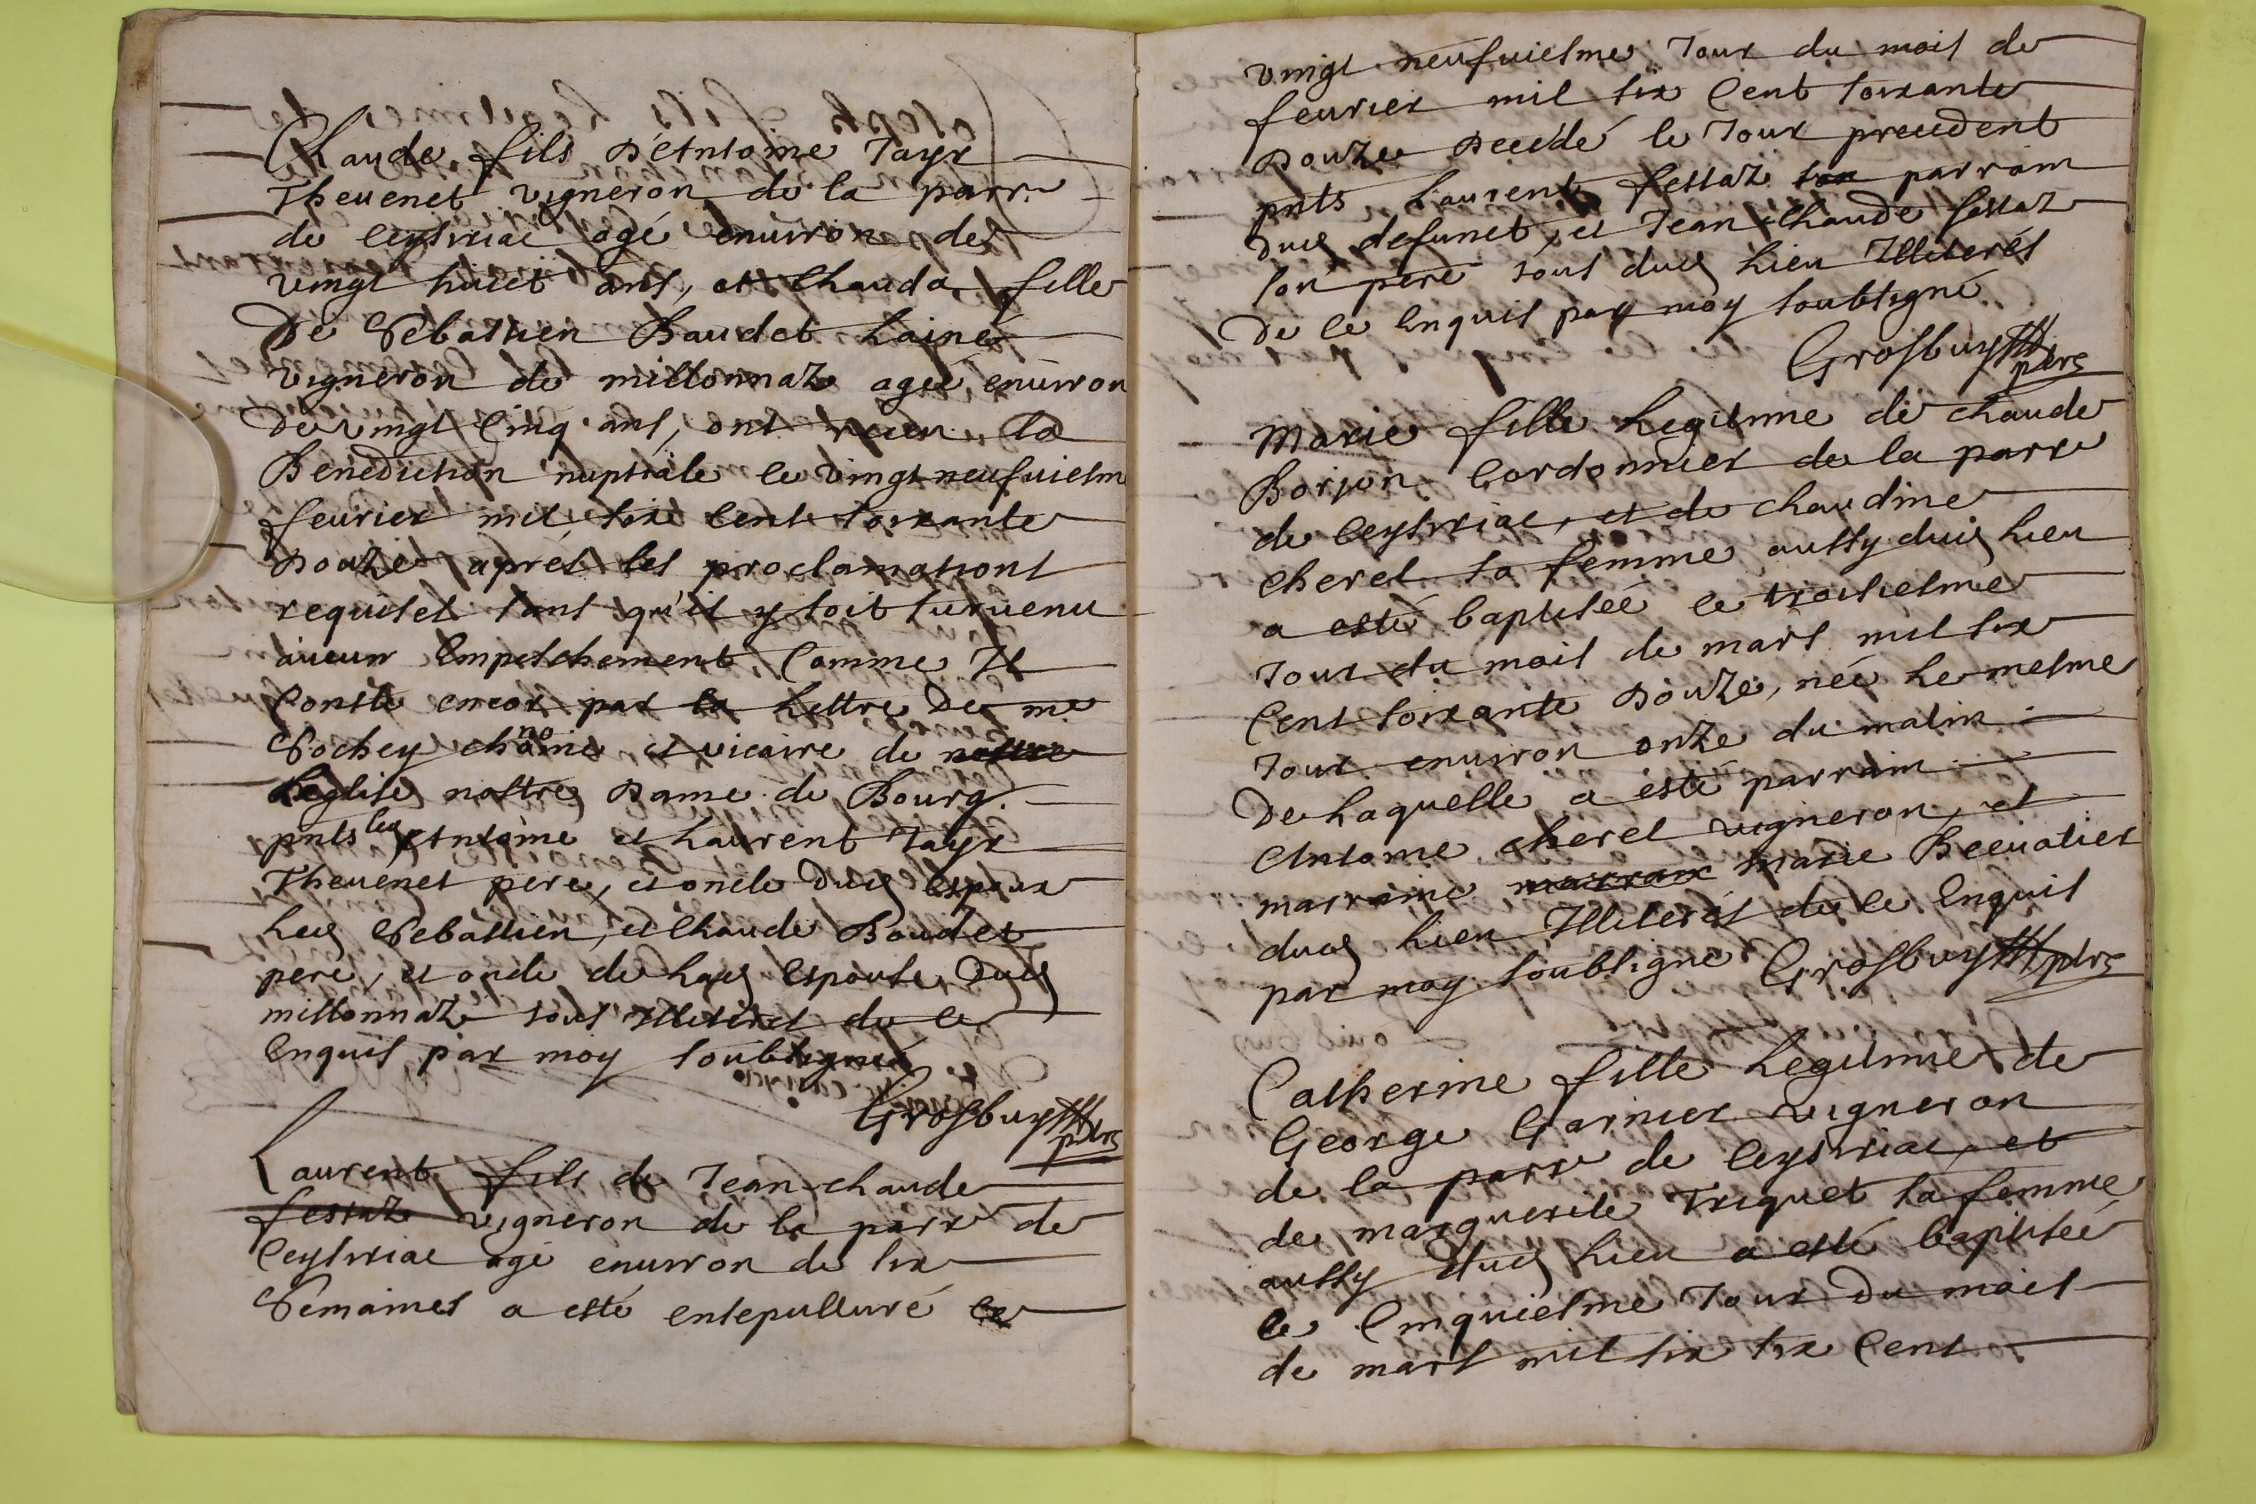 Claude fils D'Antoine Tayr
Thevenet vigneron de la parr.
de Ceysiriac agé environ de
vingt huict ans, et Clauda fille
De Sebastien Baudet Laine
vigneron de millonnaz agée environ
de vingt Cinq ans, ont receu la
Benediction nuptiale le vingt neufviesm
fevrier mil six Cent soixante
Douze aprés les proclamations
requises sans qu'il y soit survenu
aucun Empeschement Comme Il
Conste encor par la Lettre De me
Pochey chanoine et vicaire de
Leglise nostre Dame de Bourg.
pnts les Antoine et Laurent Tayr
Thevenet pere, et oncle dud Espoux
Led Sebastien, et Claude Baudet
pere, et oncle de Lad Espouse dud
millonnaz tous Illiterés de ce
Enquis par moy soubsigné
Grosbuys pbre
Laurent fils de Jean Claude
festaz vigneron de la parr de
Ceysiriac agé environ de six
Semaines a esté ensepulturé le
vingt neufviesme Jour du mois de
fevrier mil six Cent soixante
Douze Decédé le Jour precedent
pnts Laurent festaz son parrain
dud defunct, et Jean Claude festaz
son pere tous dud Lieu Illiterés
De ce Enquis par moy soubsigné
Grosbuys pbre
Marie fille Legitime de Claude
Borjon Cordonnier de la parr
de Ceysiriac, et de Claudine
Cheret sa femme aussy dud Lieu
a esté baptisée le troisiesme
Jour du mois de mars mil six
Cent soixante Douze, née Le mesme
Jour environ onze du matin
De Laquelle a esté parrain
Antoine Cheret vigneron, et
marraine marie
dud Lieu Illiterés de ce Enquis
par moy soubsigné Grosbuys pbre
Catherine fille Legitime de
George Garnier vigneron
de la parr de Ceysiriac, et
de marguerite Triquet sa femme
aussy dud Lieu a esté baptisée
le Cinquiesme Jour Du mois
de mars mil six six Cent